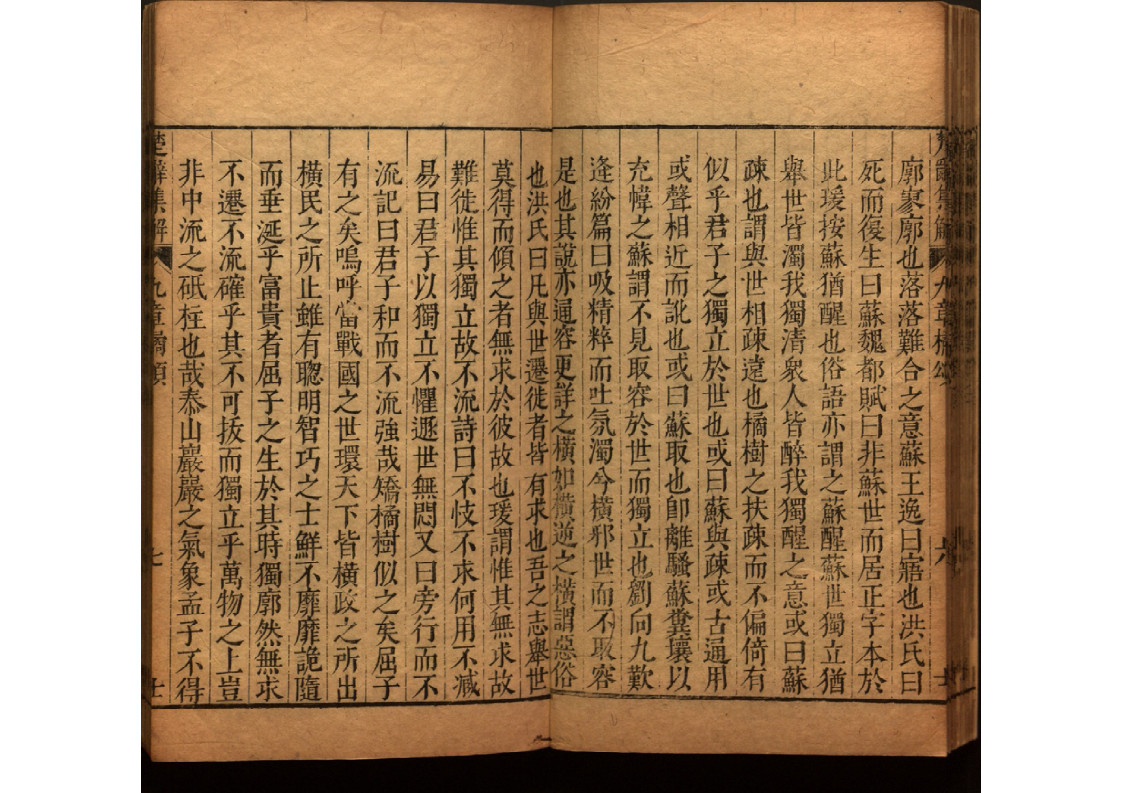 廓寥廓也落落難合之意蘇王逸曰寤也洪氏曰
死而復生曰蘇魏都賦曰非蘇世而居正字本於
此瑗按蘇猶醒也俗語亦謂之蘇醒蘇世獨立猶
舉世皆濁我獨清衆人皆醉我獨醒之意或曰蘇
疎也謂與世相疎遠也橘樹之扶疎而不偏倚有
似乎君子之獨立於世也或曰蘇與疎或古通用
或聲相近而訛也或曰蘇取也卽離騷蘇糞壤以
充幃之蘇謂不見取容於世而獨立也劉向九歎
逢紛篇曰吸精粹而吐氛濁兮橫邪世而不取容
是也其說亦通容更詳之橫如橫逆之橫謂惡俗
也洪氏曰凡與世遷徙者皆有求也吾之志舉世
莫得而傾之者無求於彼故也瑗謂惟其無求故
難徙惟其獨立故不流詩曰不忮不求何用不臧
易曰君子以獨立不懼遯世無悶又曰旁行而不
流記曰君子和而不流強哉矯橘樹似之矣屈子
有之矣嗚呼當戰國之世環天下皆橫政之所出
橫民之所止雖有聰明智巧之士鮮不靡靡詭隨
而垂涎乎富貴者屈子之生於其時獨廓然無求
不遷不流確乎其不可拔而獨立乎萬物之上豈
非中流之砥柱也哉泰山巖巖之氣象孟子不得
楚辭集解
九章橘頌
七